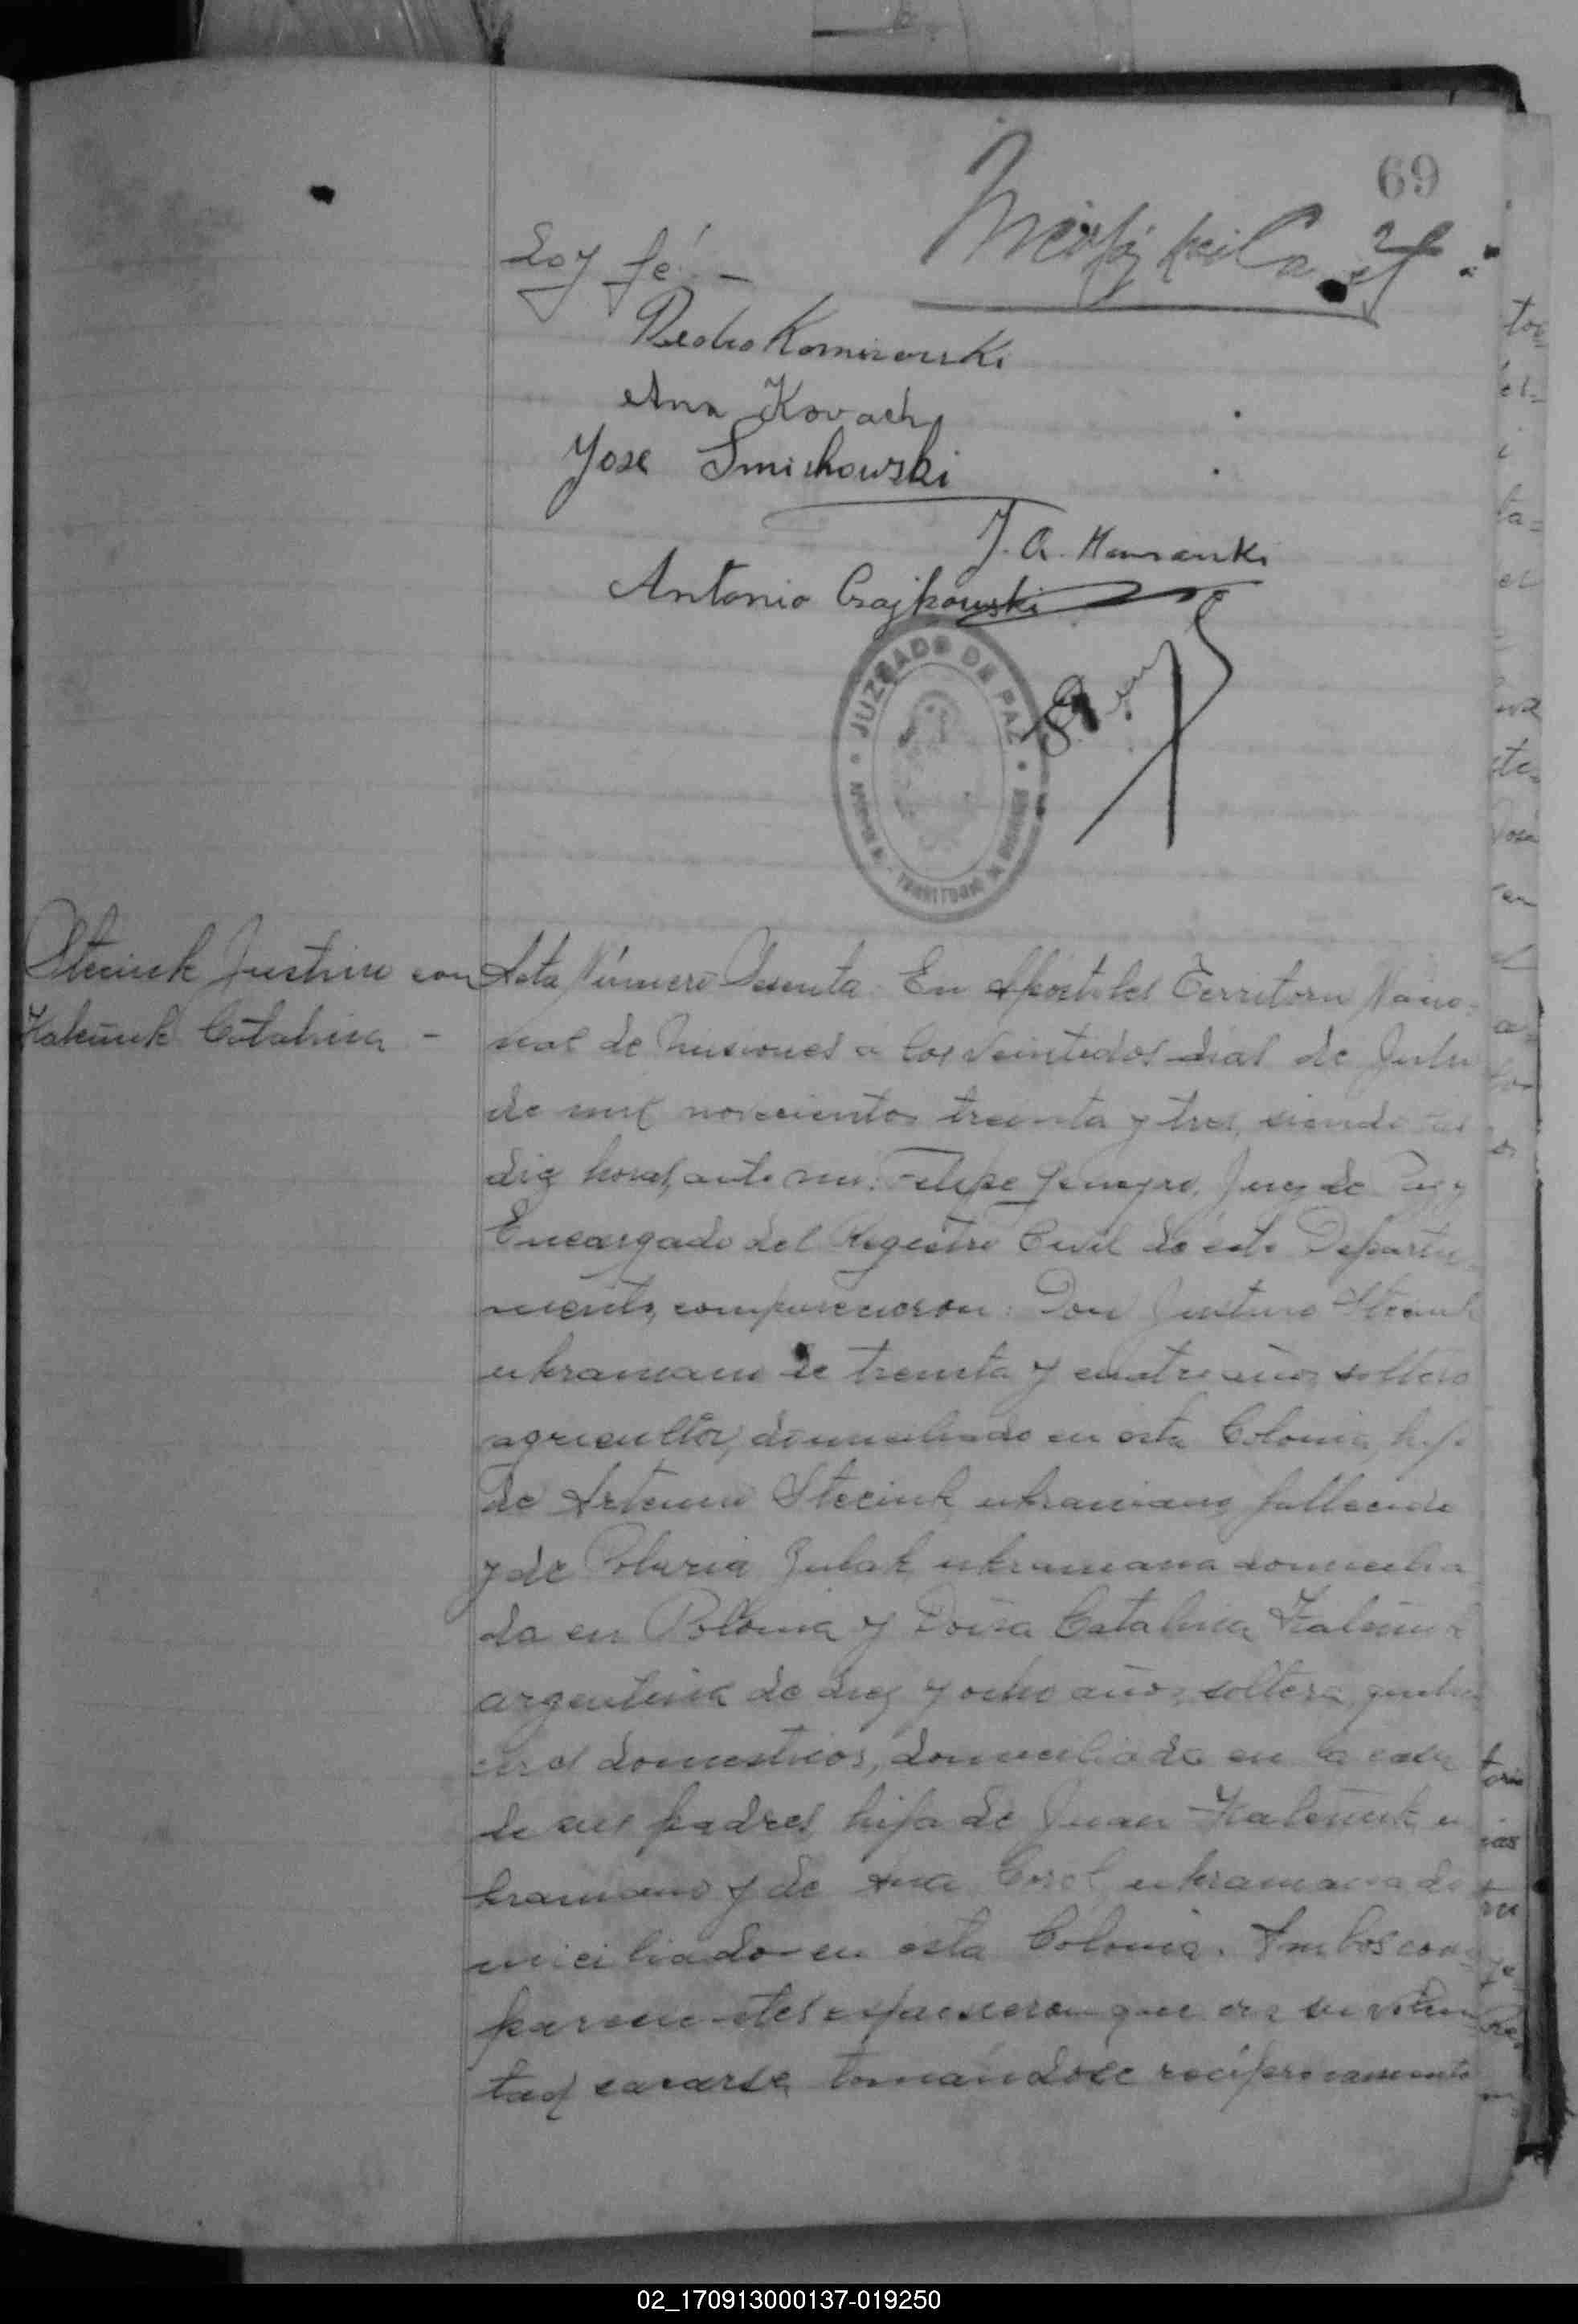 69
Doy fé. –
Pedro Komisarski
Ana Kovach
Jose Smichowski
Antonio Czajkowski
JUZGADO DE PAZ
TERRITORIO DE MISIONES
Steciuk Justino con
Kaleñuk Catalina –
Acta Número Sesenta. En Apóstoles Territorio Nacio=
nal de Misiones a los veintidos dias de Julio
de mil novecientos treinta y tres, siendo las
diez horas, ante mi: Felipe Juez de Paz y
Encargado del Registro Civil de éste Departa=
mento, comparecieron: Don Justino Steciuk
ukraniano de treinta y cuatro años, soltero
agricultor, domiciliado en esta Colonia, hijo
de Artemio Steciuk, ukraniano, fallecido
y de ukraniana domicilia
da en Polonia y Doña Catalina Kaleñuk
argentina de diez y ocho años, soltera, queha
ceres domesticos, domiciliada en la casa
de sus padres, hija de Juan Kaleñuk, u
kraniano y de Ana ukraniana do
miciliados en esta Colonia. Ambos com=
parecientes expusieron que era su volun
tad casarse, tomándose recíprocamente
02_170913000137-019250